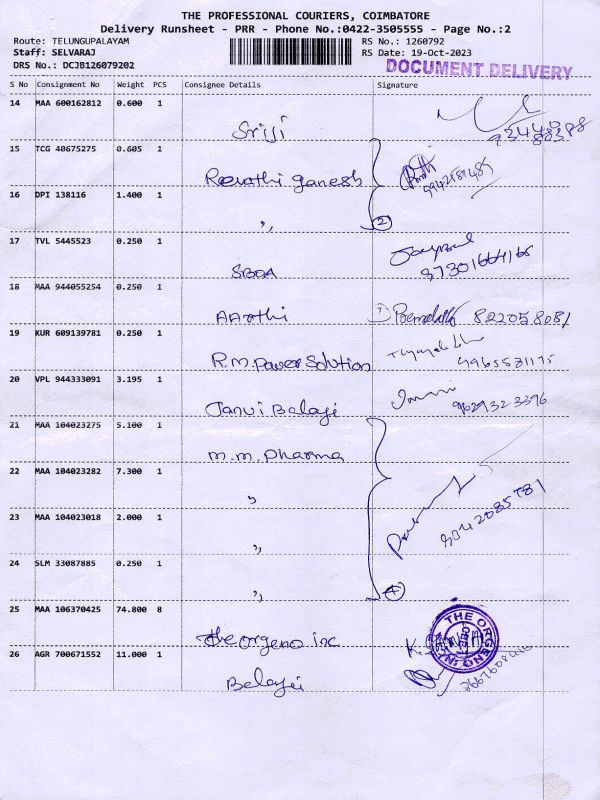 THE PROFESSIONAL COURIERS, COIMBATORE
Delivery Runsheet - PRR - Phone No.:0422-3505555 - Page No.:2
Route: TELUNGUPALAYAM RS No.: 1260792
Staff: SELVARAJ RS Date: 19-Oct-2023
DRS No.: DCJB126079202 DOCUMENT DELIVERY
S No Consignment No Weight PCS Consignee Details Signature
14 MAA 600162812 0.600 1
Sriji
15 TCG 40675275 0.605 1
Revathi ganesh
16 DPI 138116 1.400 1
" 2
17 TVL 5445523 0.250 1
SBOA
18 MAA 944055254 0.250 1
AArthi 822058081
19 KUR 609139781 0.250 1
R.m.Power Solution
20 VPL 944333091 3.195 1
Janvi Balaji 9629323396
21 MAA 104023275 5.100 1
m.m. Pharma
22 MAA 104023282 7.300 1
"
23 MAA 104023018 2.000 1
" 9342085781
24 SLM 33087885 0.250 1
" 4
25 MAA 106370425 74.800 8
the orgeno inc THE ORGENO INC
26 AGR 700671552 11.000 1
Balaji